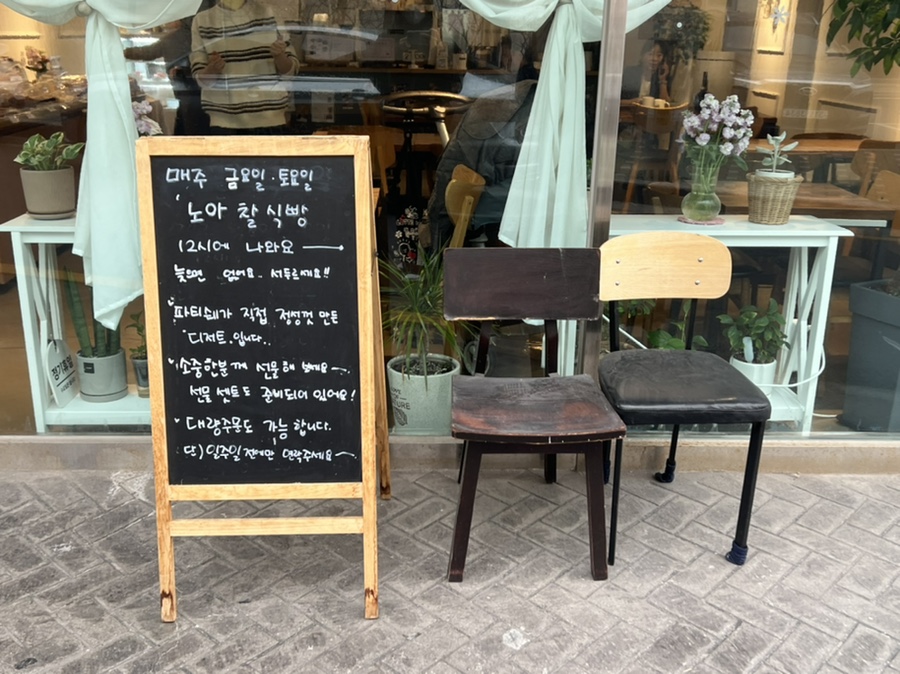 매주 금요일·토요일
'노아 찰 식빵
12시에 나와요
늦으면 없어요. 서두르세요!!
"파티쉐가 직접 정성껏 만든
디저트 입니다..
소중한분께 선물해 보세요~.
선물세트도 준비되어 있어요!
" 대량주문도 가능합니다.
단) 일주일 전에만 연락주세요~
정기휴일